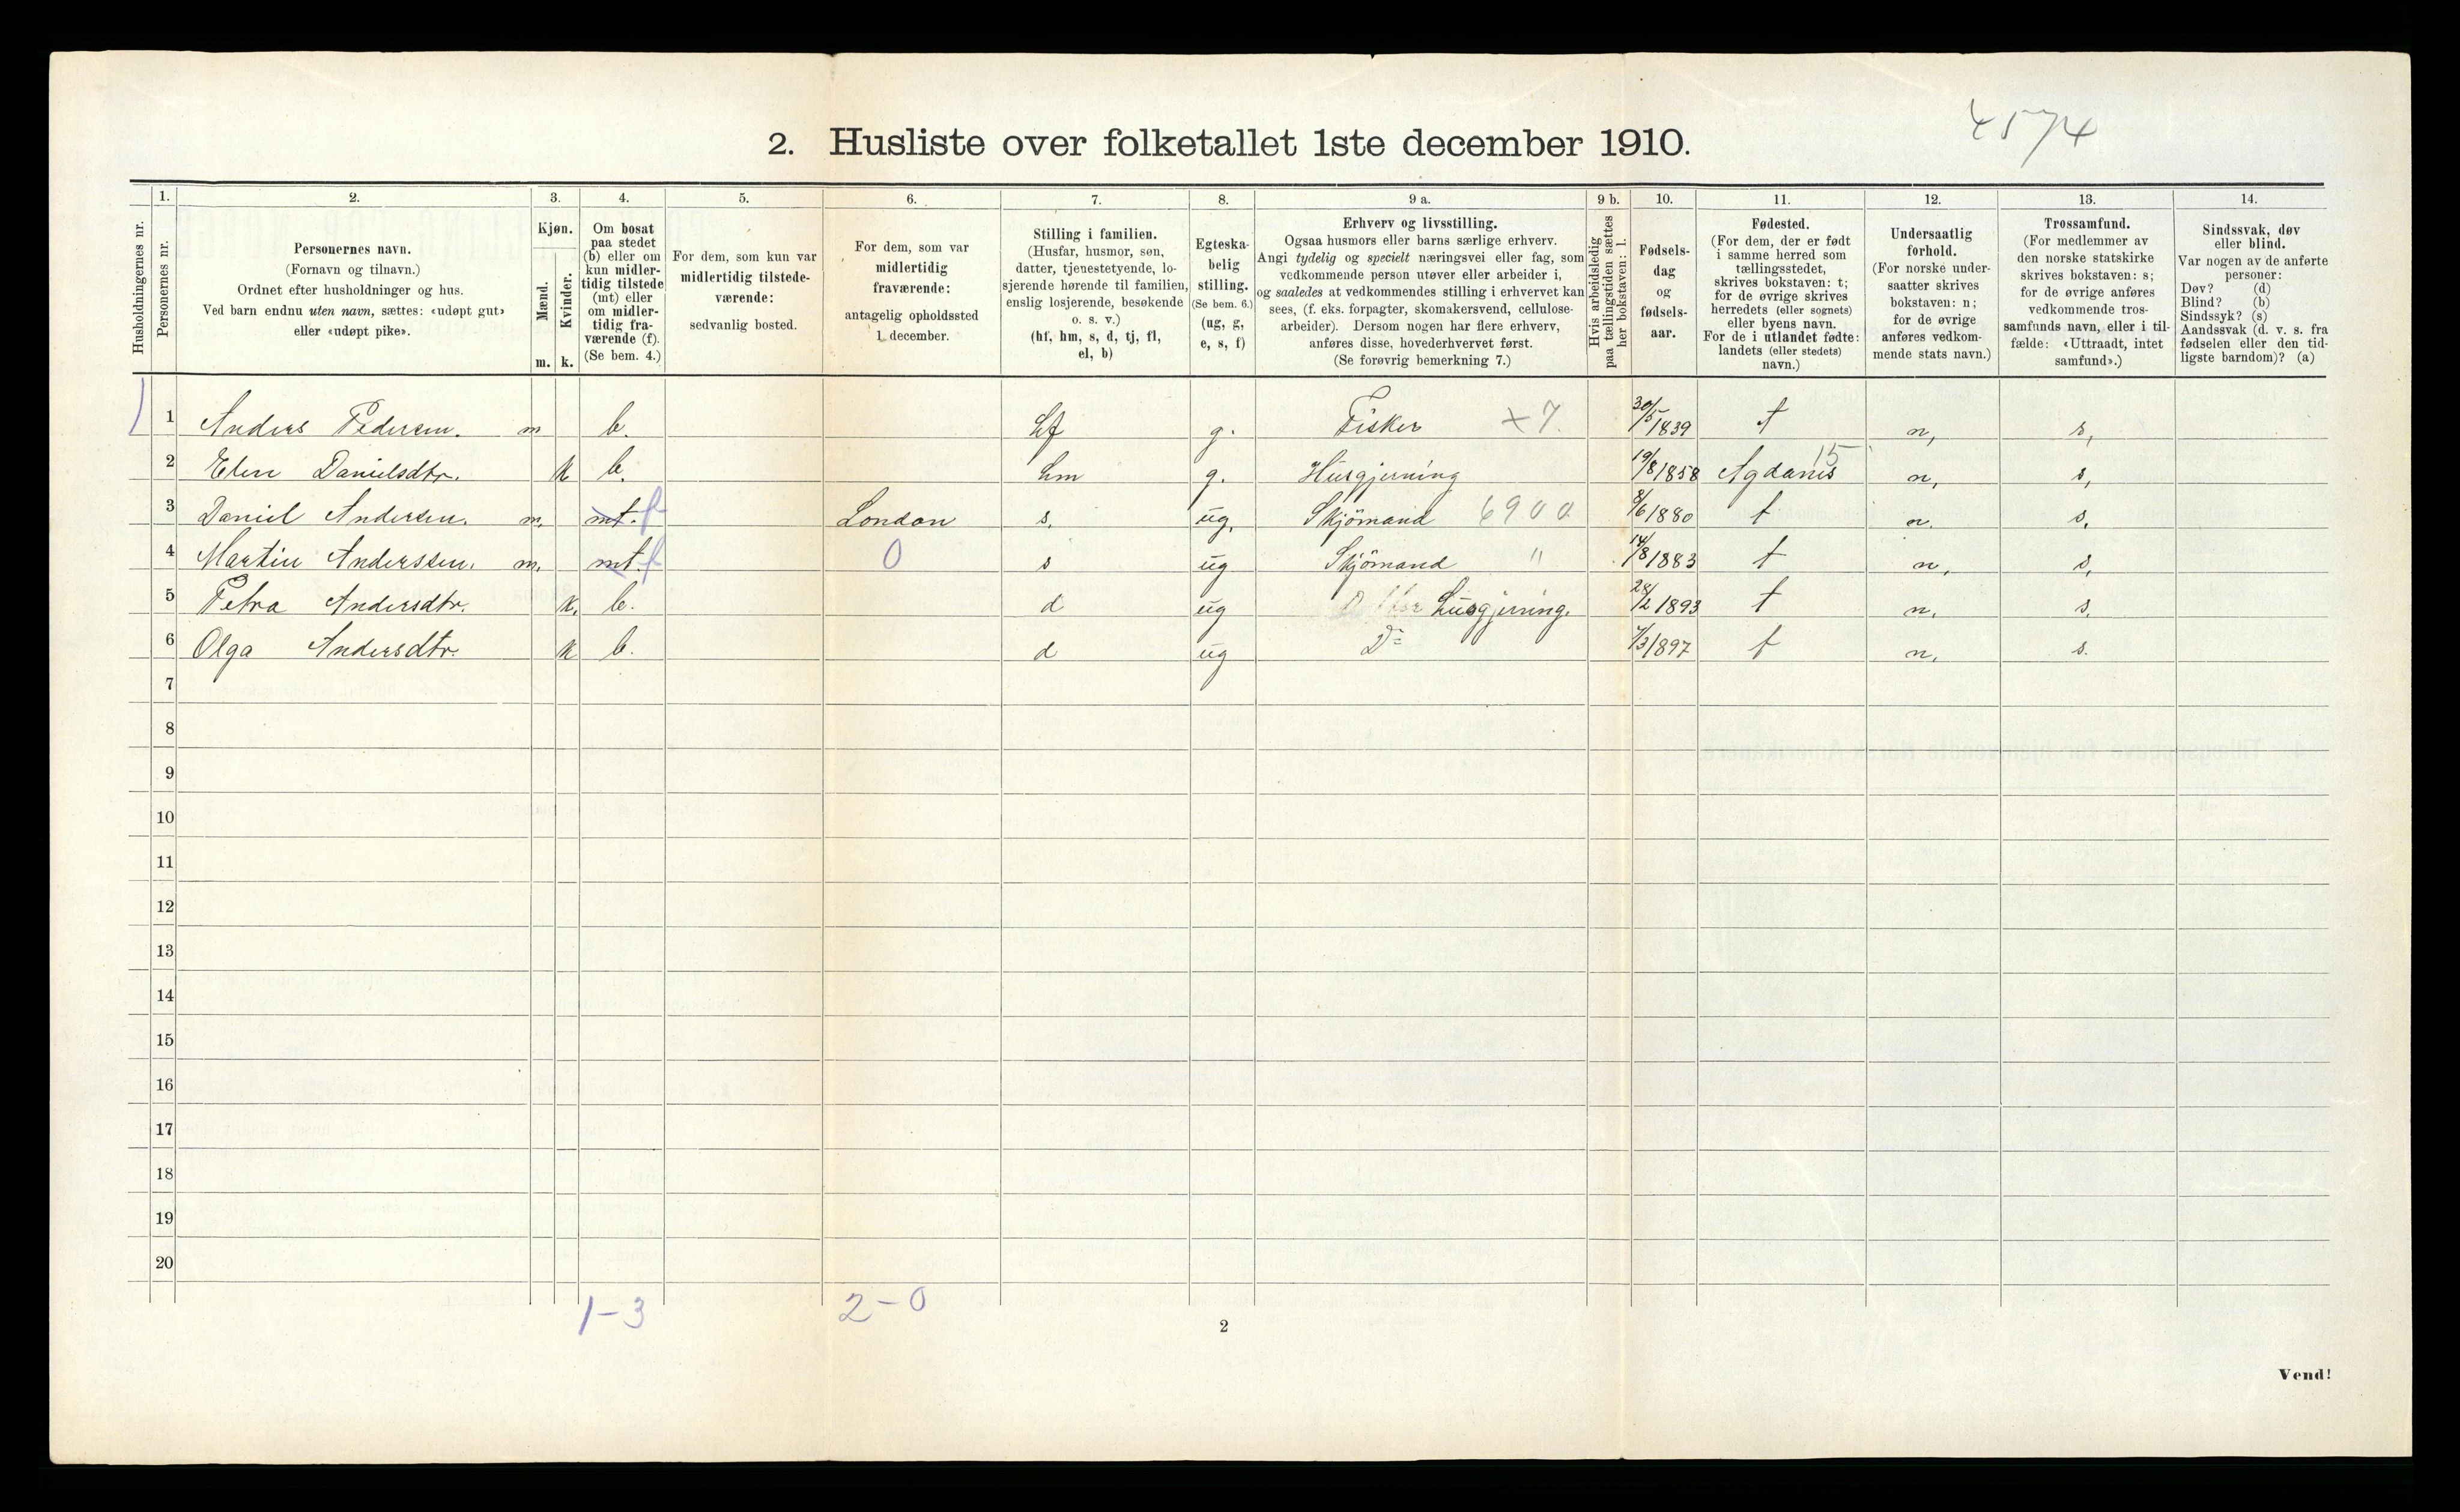 4574
2. Husliste over folketallet 1ste december 1910.
Husholdningernes nr.
1.
Personernes nr.
2.
Personernes navn.
(Fornavn og tilnavn.)
Ordnet efter husholdninger og hus.
Ved barn endnu uten navn, sættes: «udøpt gut»
eller «udøpt pike».
3.
Kjøn.
Mænd.
Kvinder.
m. k.
4.
Om bosat
paa stedet
(b) eller om
kun midler-
tidig tilstede
(mt) eller
om midler-
tidig fra-
værende (f).
(Se bem. 4.)
5.
For dem, som kun var
midlertidig tilstede-
værende:
sedvanlig bosted.
6.
For dem, som var
midlertidig
fraværende:
antagelig opholdssted
1. december.
7.
Stilling i familien.
(Husfar, husmor, søn,
datter, tjenestetyende, lo-
sjerende hørende til familien,
enslig losjerende, besøkende
o. s. v.)
(hf, hm, s, d, tj, fl,
el, b)
8.
Egteska-
belig
stilling.
(Se bem. 6.)
(ug, g,
e, s, f)
9 a.
Erhverv og livsstilling.
Ogsaa husmors eller barns særlige erhverv.
Angi tydelig og specielt næringsvei eller fag, som
vedkommende person utøver eller arbeider i,
og saaledes at vedkommendes stilling i erhvervet kan
sees, (f. eks. forpagter, skomakersvend, cellulose-
arbeider). Dersom nogen har flere erhverv,
anføres disse, hovederhvervet først.
(Se forøvrig bemerkning 7.)
9 b.
Hvis arbeidsledig
paa tællingstiden sættes
her bokstaven: l.
10.
Fødsels-
dag
og
fødsels-
aar.
11.
Fødested.
(For dem, der er født
i samme herred som
tællingsstedet,
skrives bokstaven: t;
for de øvrige skrives
herredets (eller sognets)
eller byens navn.
For de i utlandet fødte:
landets (eller stedets)
navn.)
12.
Undersaatlig
forhold.
(For norske under-
saatter skrives
bokstaven: n;
for de øvrige
anføres vedkom-
mende stats navn.)
13.
Trossamfund.
(For medlemmer av
den norske statskirke
skrives bokstaven: s;
for de øvrige anføres
vedkommende tros-
samfunds navn, eller i til-
fælde: «Uttraadt, intet
samfund».)
14.
Sindssvak, døv
eller blind.
Var nogen av de anførte
personer:
Døv? (d)
Blind? (b)
Sindssyk? (s)
Aandssvak (d. v. s. fra
fødselen eller den tid-
ligste barndom)? (a)
1 Anders Pedersen. m b. hf g. Fisker x 7. 30/5 1839 t n, s,
2 Elen Danielsdtr. k b. hm g. Husgjerning 19/8 1858 Agdanes 15 n, s,
3 Daniel Andersen. m. mt. f London s. ug. Skjömand 6900 8/6 1880 t n. s.
4 Martin Anderssen. m. mt. f 0 s ug Skjömand " 14/8 1883 t n, s,
5 Petra Andersdtr. k. b. d ug husgjerning. 28/2 1893 t n. s.
6 Olga Andersdtr. k b. d ug Do 7/3 1897 t n. s.
7
8
9
10
11
12
13
14
15
16
17
18
19
20
1-3 2-0
2
Vend!